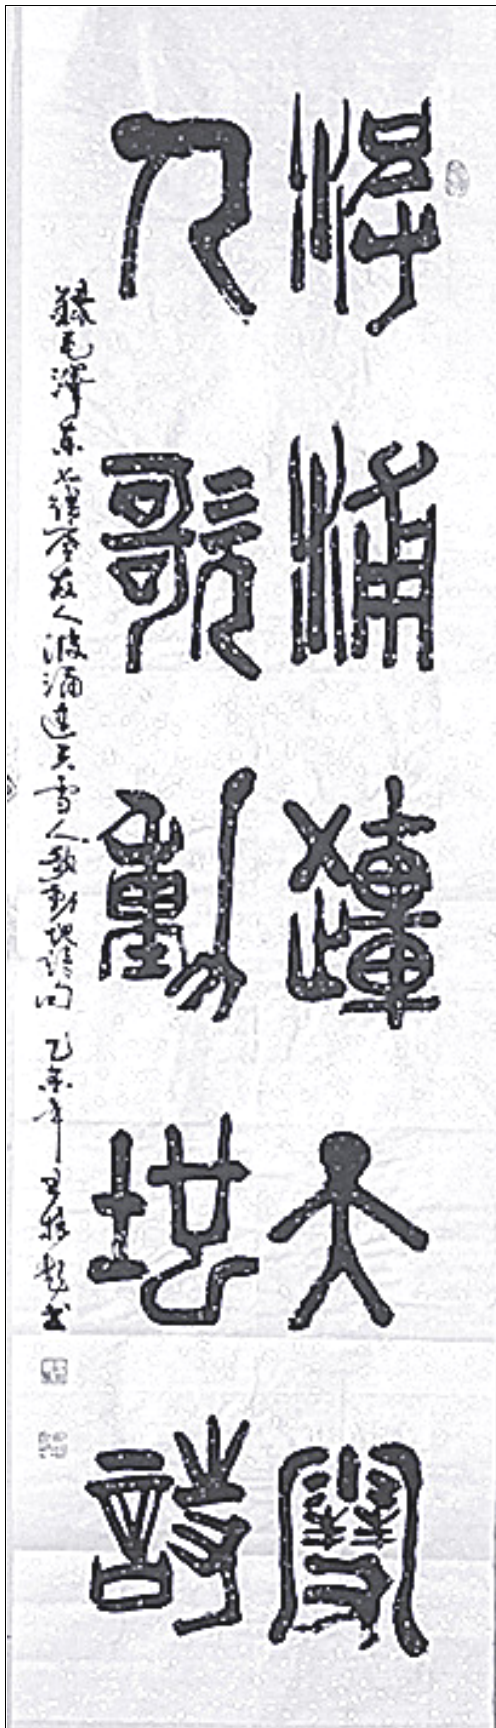 波涌連天雪
人歌動地詩
錄毛澤東七律答友人波涌連天雪人歌動地詩句 乙未年 王 書